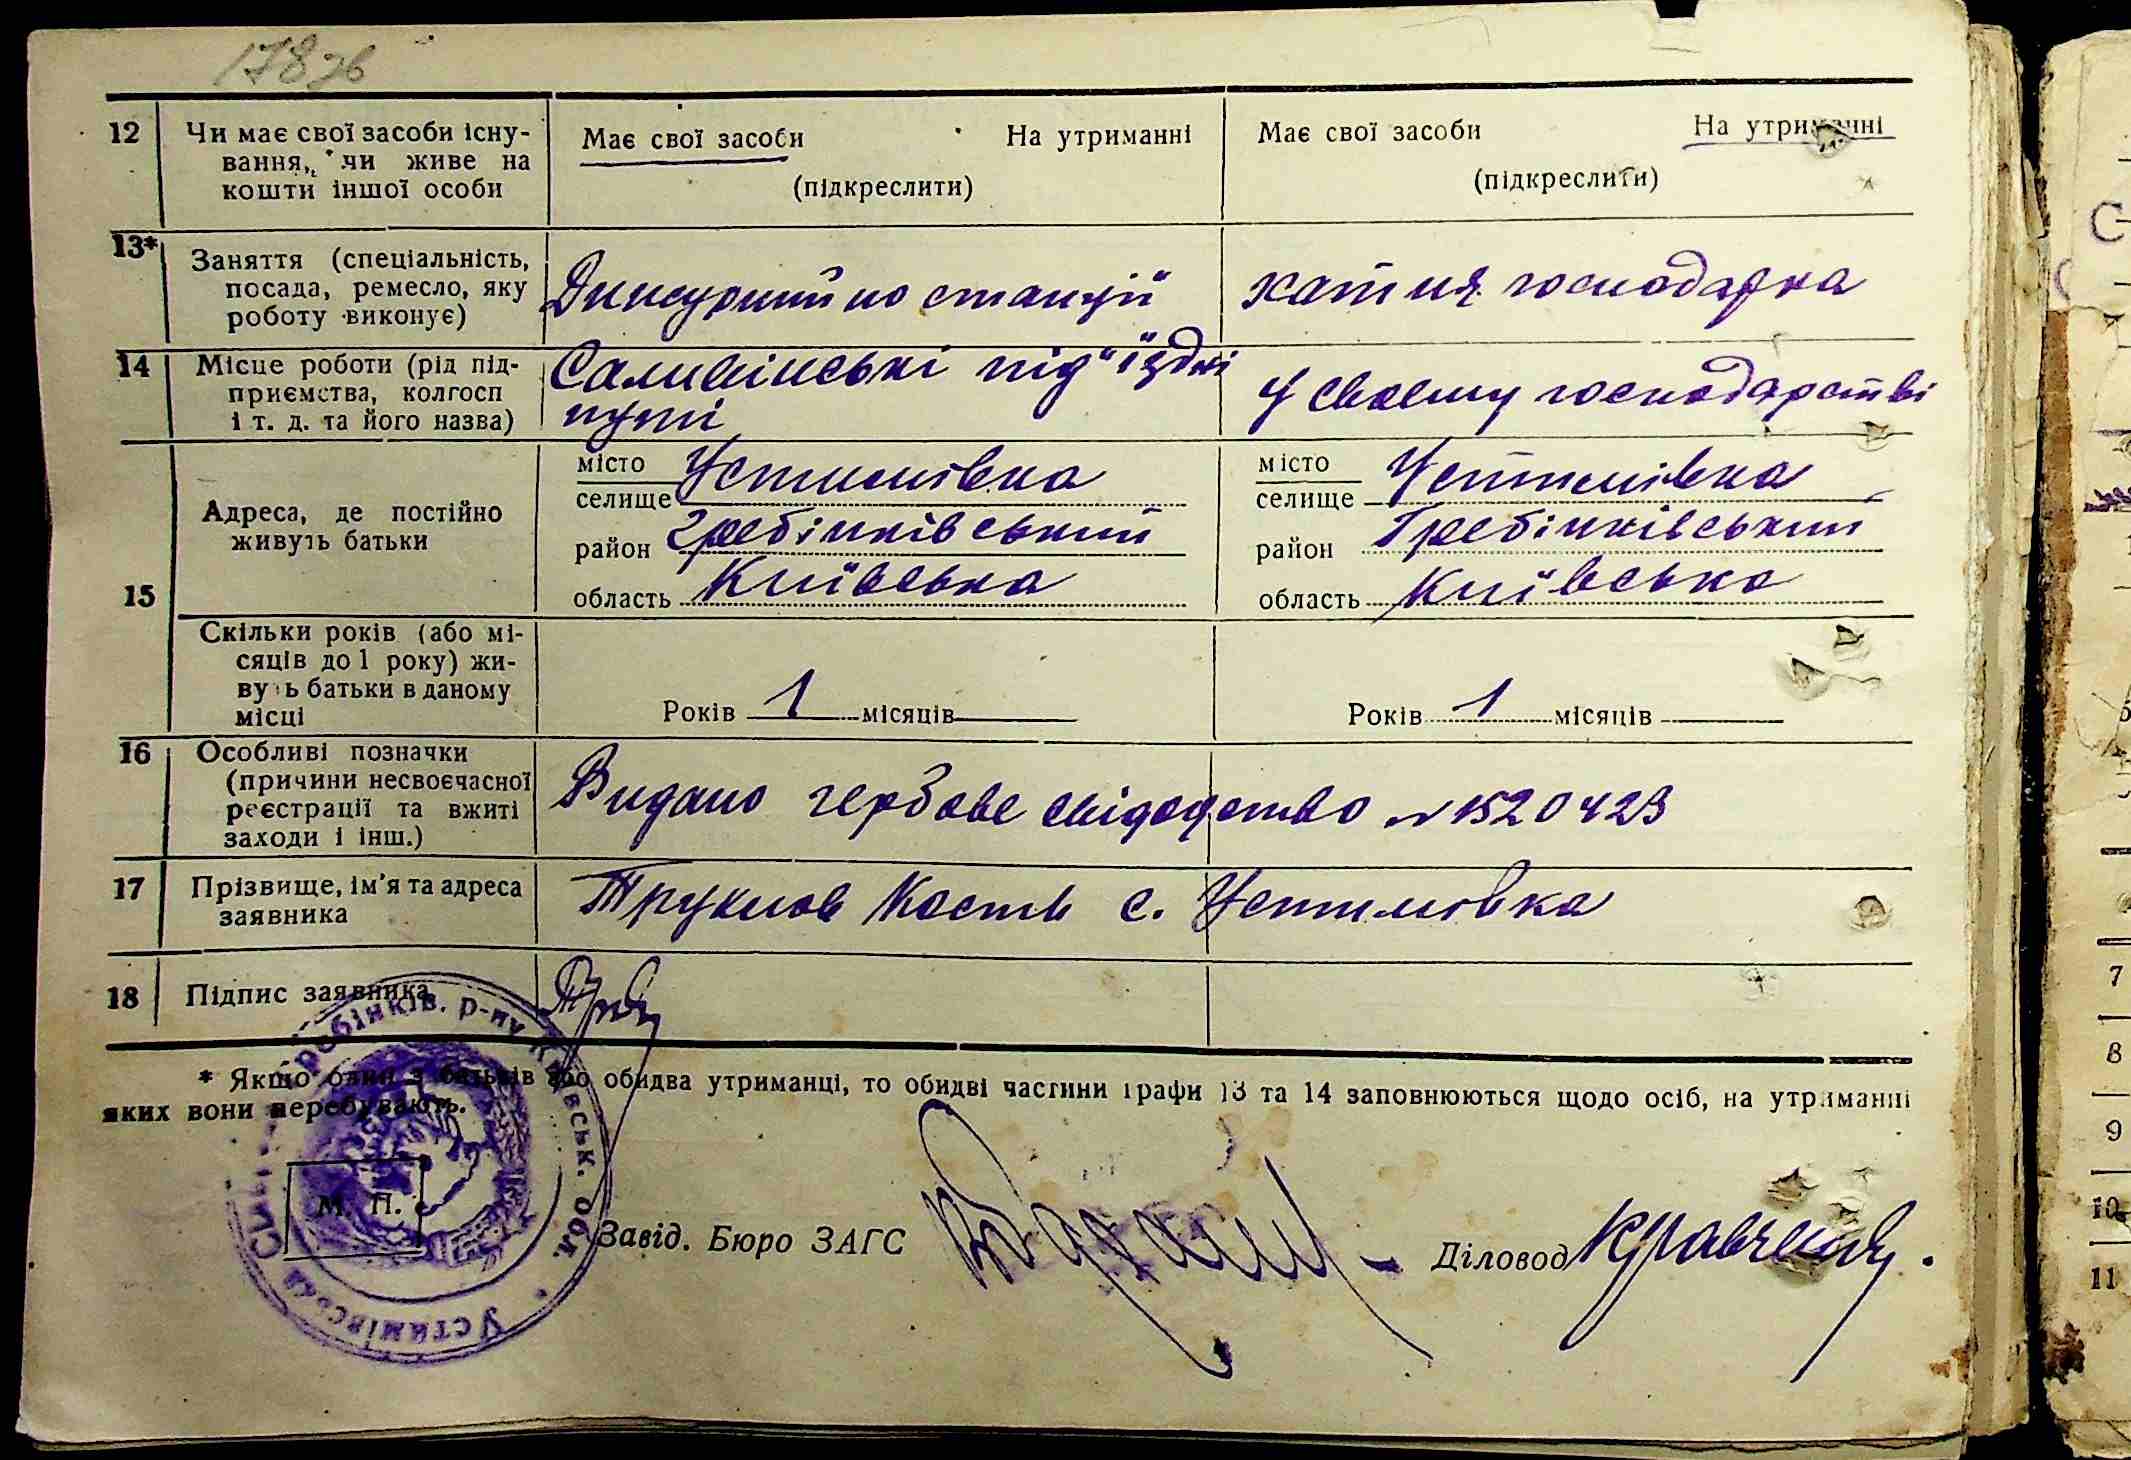 178 зв
12 Чи має свої засоби існу- Має свої засоби На утриманні Має свої засоби На утриманні
вання, чи живе на (підкреслити) (підкреслити)
кошти іншої особи
13* Заняття (спеціальність,
посада, ремесло, яку Дижурний по станції хатня господарка
роботу виконує)
14 Місце роботи (рід під- Саливінські під"їздні
приємства, колгосп У своєму господарстві
і т. д. та його назва) путі
місто Устимівка місто Устимівка
селище селище
15 Адреса, де постійно
живуть батьки район Гребінківський район Гребінківський
область Київська область Київська
Скільки років (або мі-
сяців до 1 року) жи-
вуть батьки в даному
місці Років 1 місяців Років 1 місяців
16 Особливі позначки
(причини несвоєчасної
реєстрації та вжиті Видано гербове свідоцтво № 1520423
заходи і інш.)
17 Прізвище, ім'я та адреса Кость с. Устимовка
заявника
18 Підпис заявника
* Якщо один з батьків або обидва утриманці, то обидві частини графи 13 та 14 заповнюються щодо осіб, на утриманні
яких вони перебувають.
М. П.
Завід. Бюро ЗАГС
Діловод Кравченко.
Устимівська Сіль Гребінків. р-ну Київськ. обл.
7
8
9
10
11